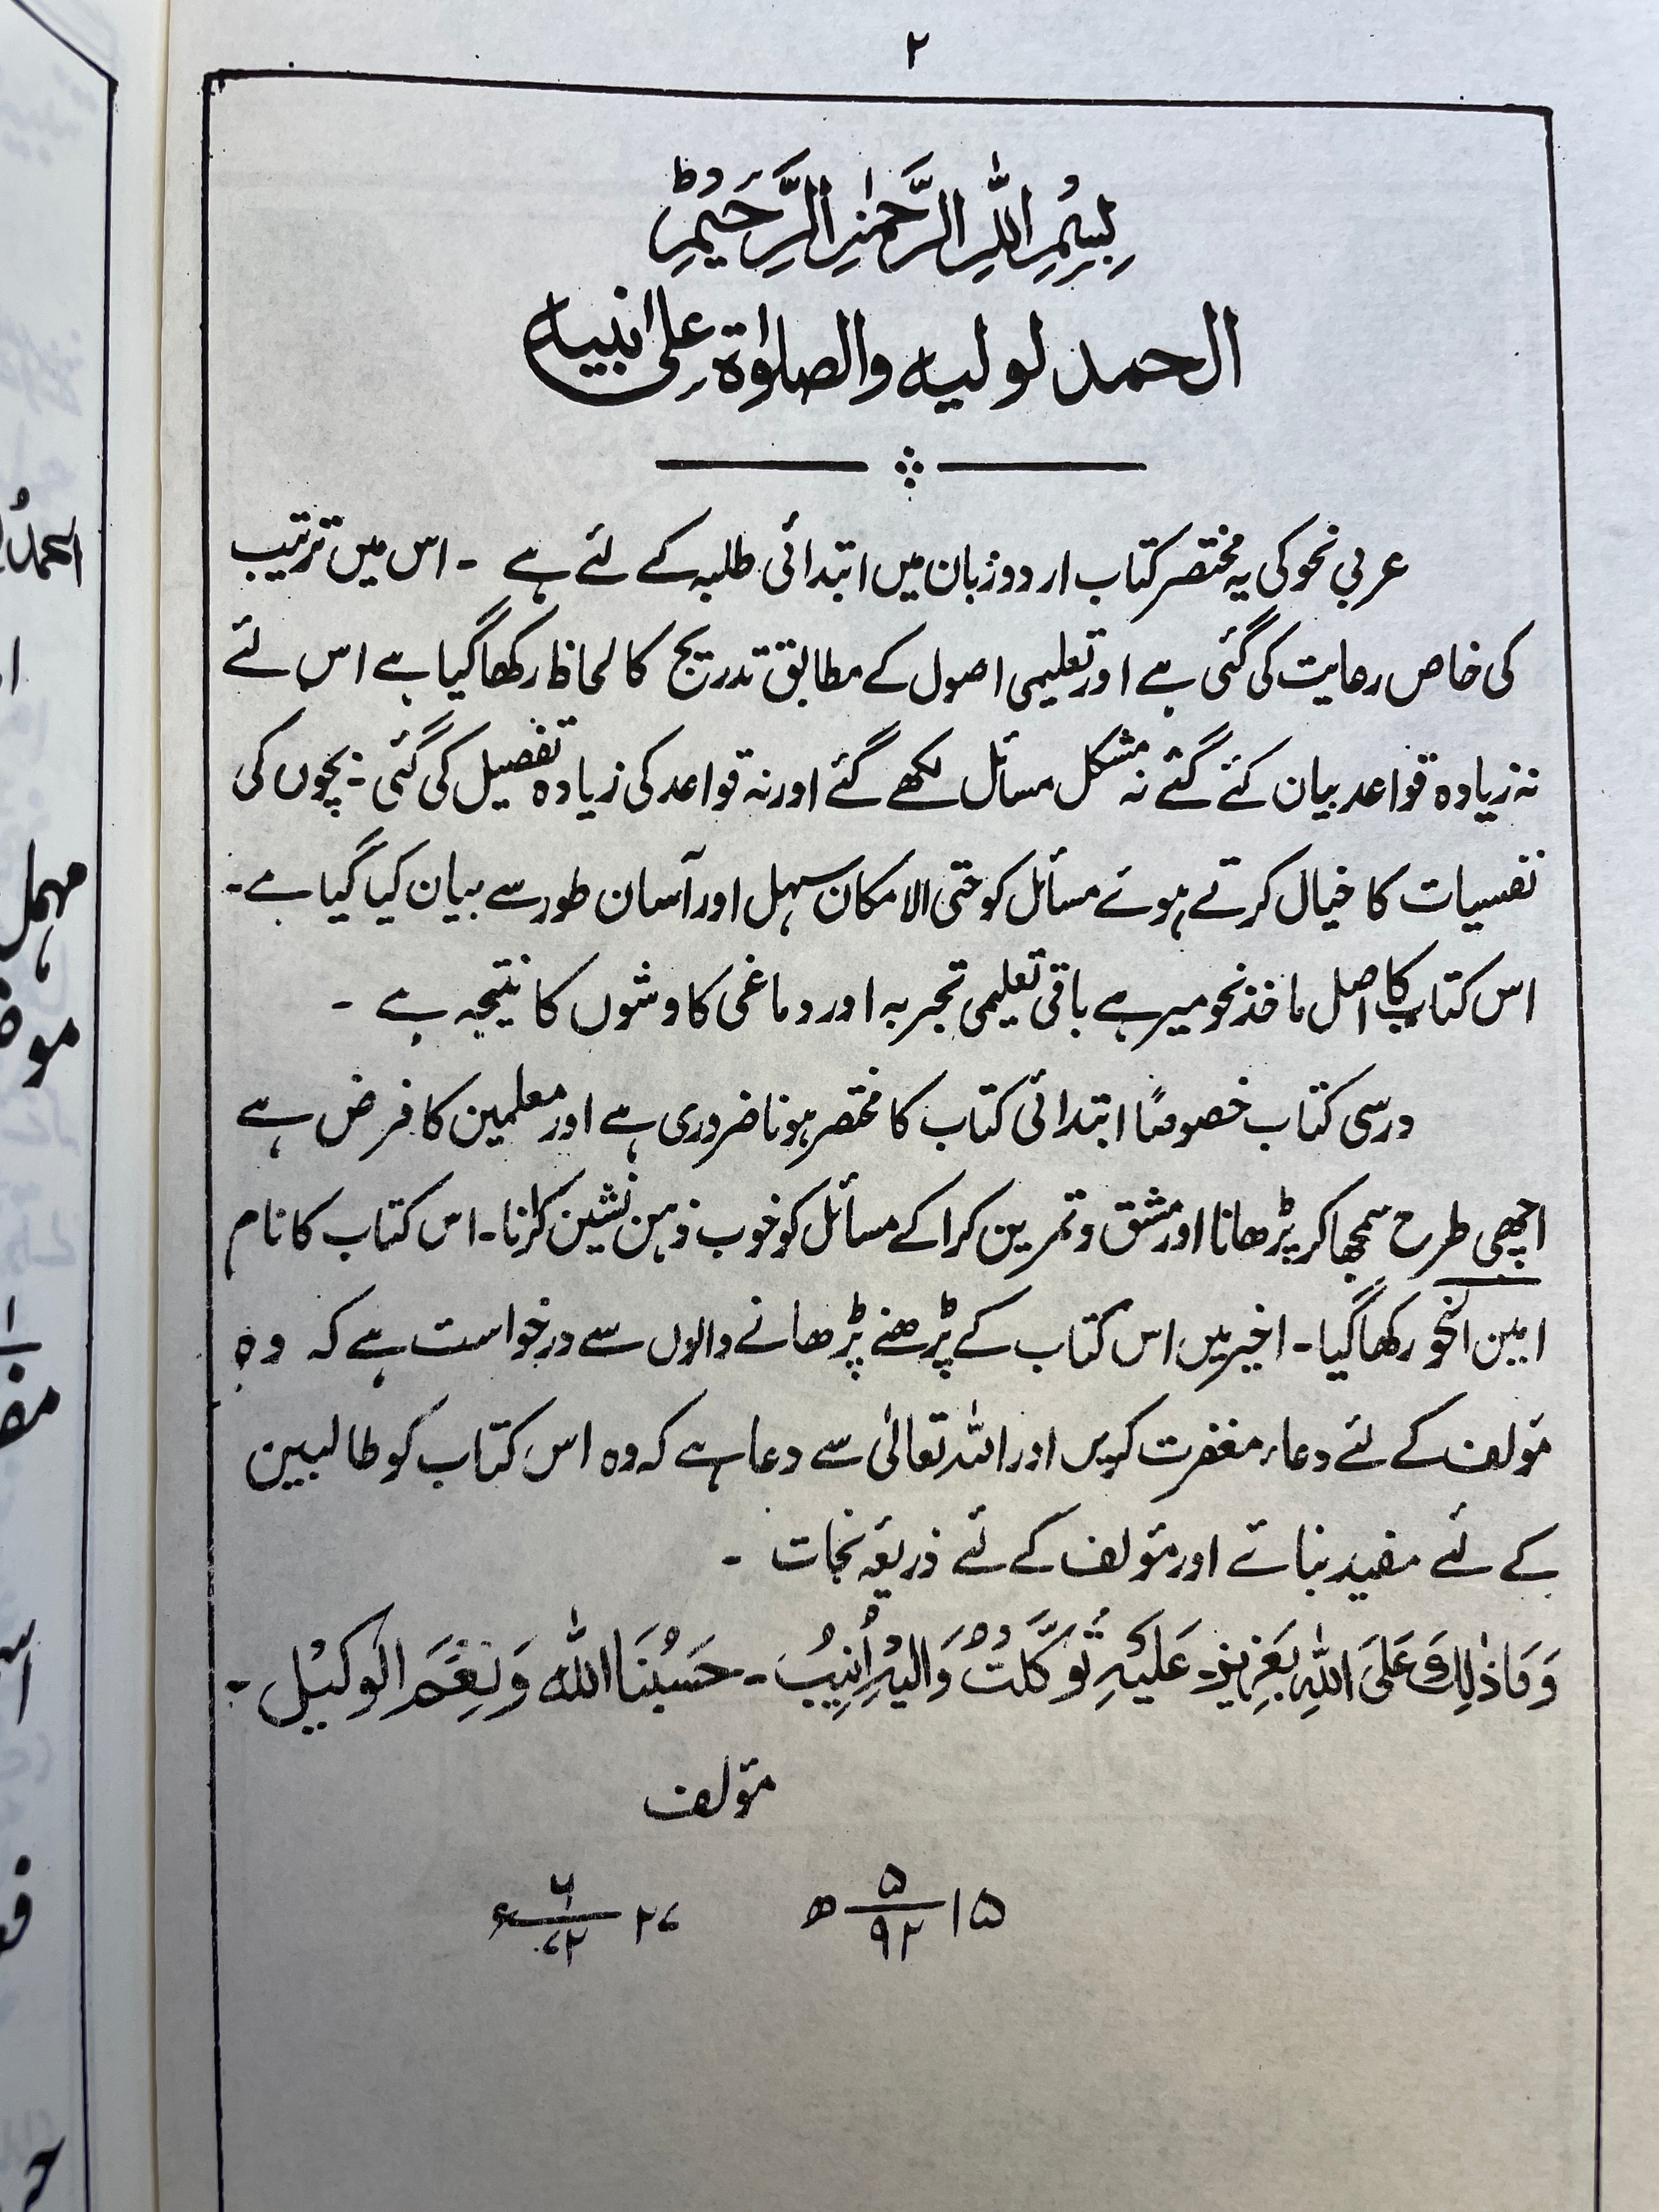 ۲
بِسْمِ اللّٰهِ الرَّحْمٰنِ الرَّحِيْمِ ط
الحمد لوليه والصلوٰة على نبيه
عربی نحو کی یہ مختصر کتاب اردو زبان میں ابتدائی طلبہ کے لئے ہے ۔ اس میں ترتیب
کی خاص رعایت کی گئی ہے اور تعلیمی اصول کے مطابق تدریج کا لحاظ رکھا گیا ہے اس لئے
نہ زیادہ قواعد بیان کئے گئے نہ مشکل مسائل لکھے گئے اور نہ قواعد کی زیادہ تفصیل کی گئی ۔ بچوں کی
نفسیات کا خیال کرتے ہوئے مسائل کو حتی الامکان سہل اور آسان طور سے بیان کیا گیا ہے ۔
اس کتاب کا اصل ماخذ نحو میر ہے باقی تعلیمی تجربہ اور دماغی کاوشوں کا نتیجہ ہے ۔
درسی کتاب خصوصًا ابتدائی کتاب کا مختصر ہونا ضروری ہے اور معلمین کا فرض ہے
اچھی طرح سمجھا کر پڑھانا اور مشق و تمرین کرا کے مسائل کو خوب ذہن نشین کرانا ۔ اس کتاب کا نام
ابین النحو رکھا گیا ۔ اخیر میں اس کتاب کے پڑھنے پڑھانے والوں سے درخواست ہے کہ وہ
مؤلف کے لئے دعاء مغفرت کریں اور اللہ تعالٰی سے دعا ہے کہ وہ اس کتاب کو طالبین
کے لئے مفید بنائے اور مؤلف کے لئے ذریعۂ نجات ۔
وَمَا ذٰلِكَ عَلَى اللّٰهِ بِعَزِيْزٍ ۔ عَلَيْهِ تَوَكَّلْتُ وَاِلَيْهِ اُنِيْبُ ۔ حَسْبُنَا اللّٰهُ وَنِعْمَ الْوَكِيْل ۔
مؤلف
۱۵ ۵/۹۲ ھ ۲۷ ۶/۷۲ ء